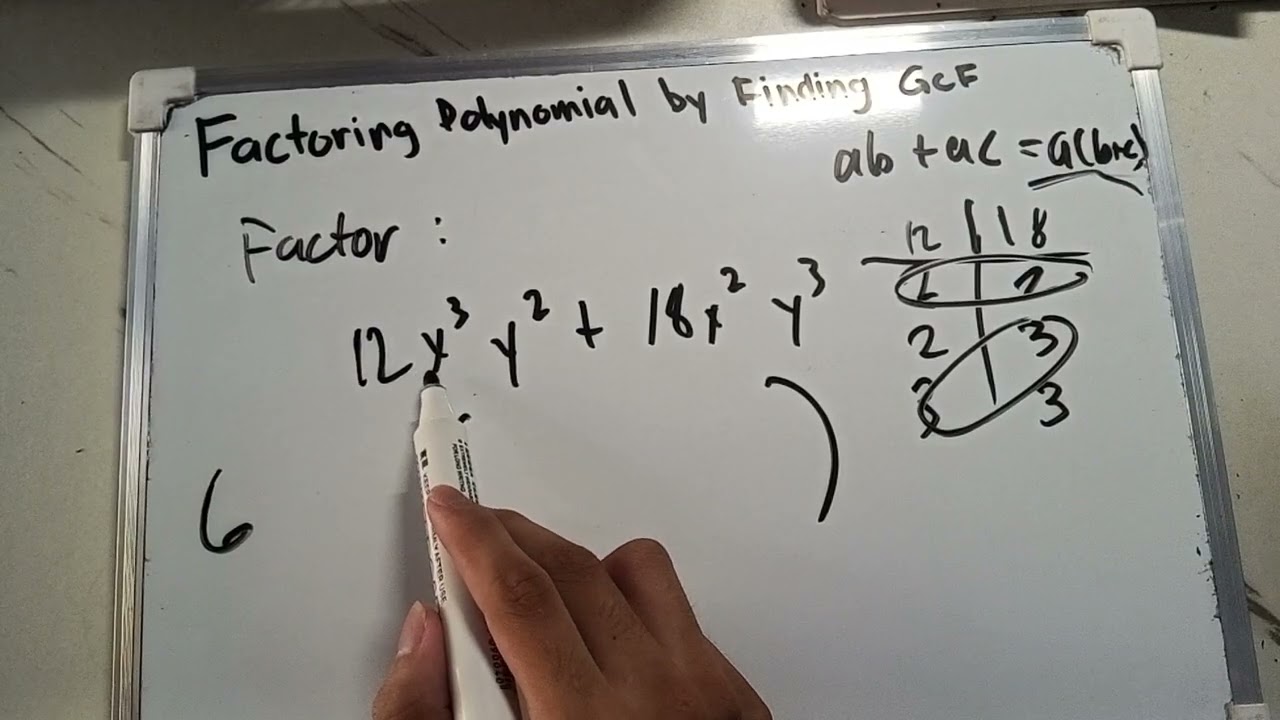 Factoring Polynomial by Finding GCF
ab + ac = a(b+c)
Factor :
12x³ y² + 18x² y³
12 | 18
2 | 2
2 | 3
3 | 3
6 )